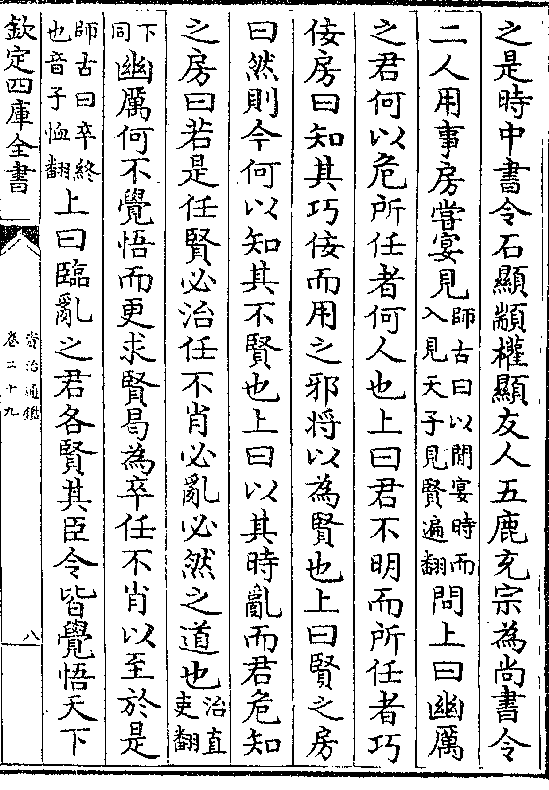 之是時中書令石顯顓權顯友人五鹿充宗為尚書令
二人用事房嘗宴見師古曰以閒宴時而入見天子見賢遍翻問上曰幽厲
之君何以危所任者何人也上曰君不明而所任者巧
佞房曰知其巧佞而用之邪将以為賢也上曰賢之房
曰然則今何以知其不賢也上曰以其時亂而君危知
之房曰若是任賢必治任不肖必亂必然之道也治直吏翻
下同幽厲何不覺悟而更求賢曷為卒任不肖以至於是
師古曰卒終也音子恤翻上曰臨亂之君各賢其臣令皆覺悟天下
欽定四庫全書
資治通鑑
卷二十九
八